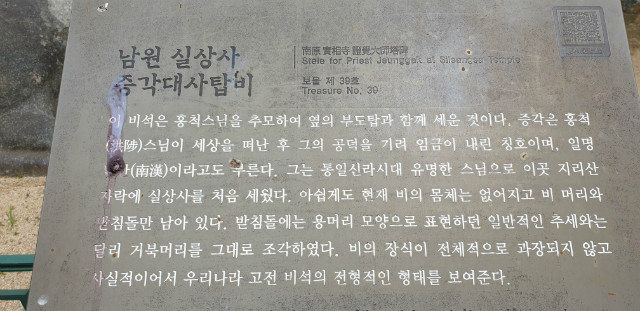 남원 실상사
증각대사탑비
南原 實相寺 證覺大師塔碑
Stele for Priest Jeunggak at Silsangsa Temple
보물 제 39호
Treasure No. 39
이 비석은 홍척스님을 추모하여 옆의 부도탑과 함께 세운 것이다. 증각은 홍척
(洪陟)스님이 세상을 떠난 후 그의 공덕을 기려 임금이 내린 칭호이며, 일명
(南漢)이라고도 부른다. 그는 통일신라시대 유명한 스님으로 이곳 지리산
자락에 실상사를 처음 세웠다. 아쉽게도 현재 비의 몸체는 없어지고 비 머리와
받침돌만 남아 있다. 받침돌에는 용머리 모양으로 표현하던 일반적인 추세와는
달리 거북머리를 그대로 조각하였다. 비의 장식이 전체적으로 과장되지 않고
사실적이어서 우리나라 고전 비석의 전형적인 형태를 보여준다.